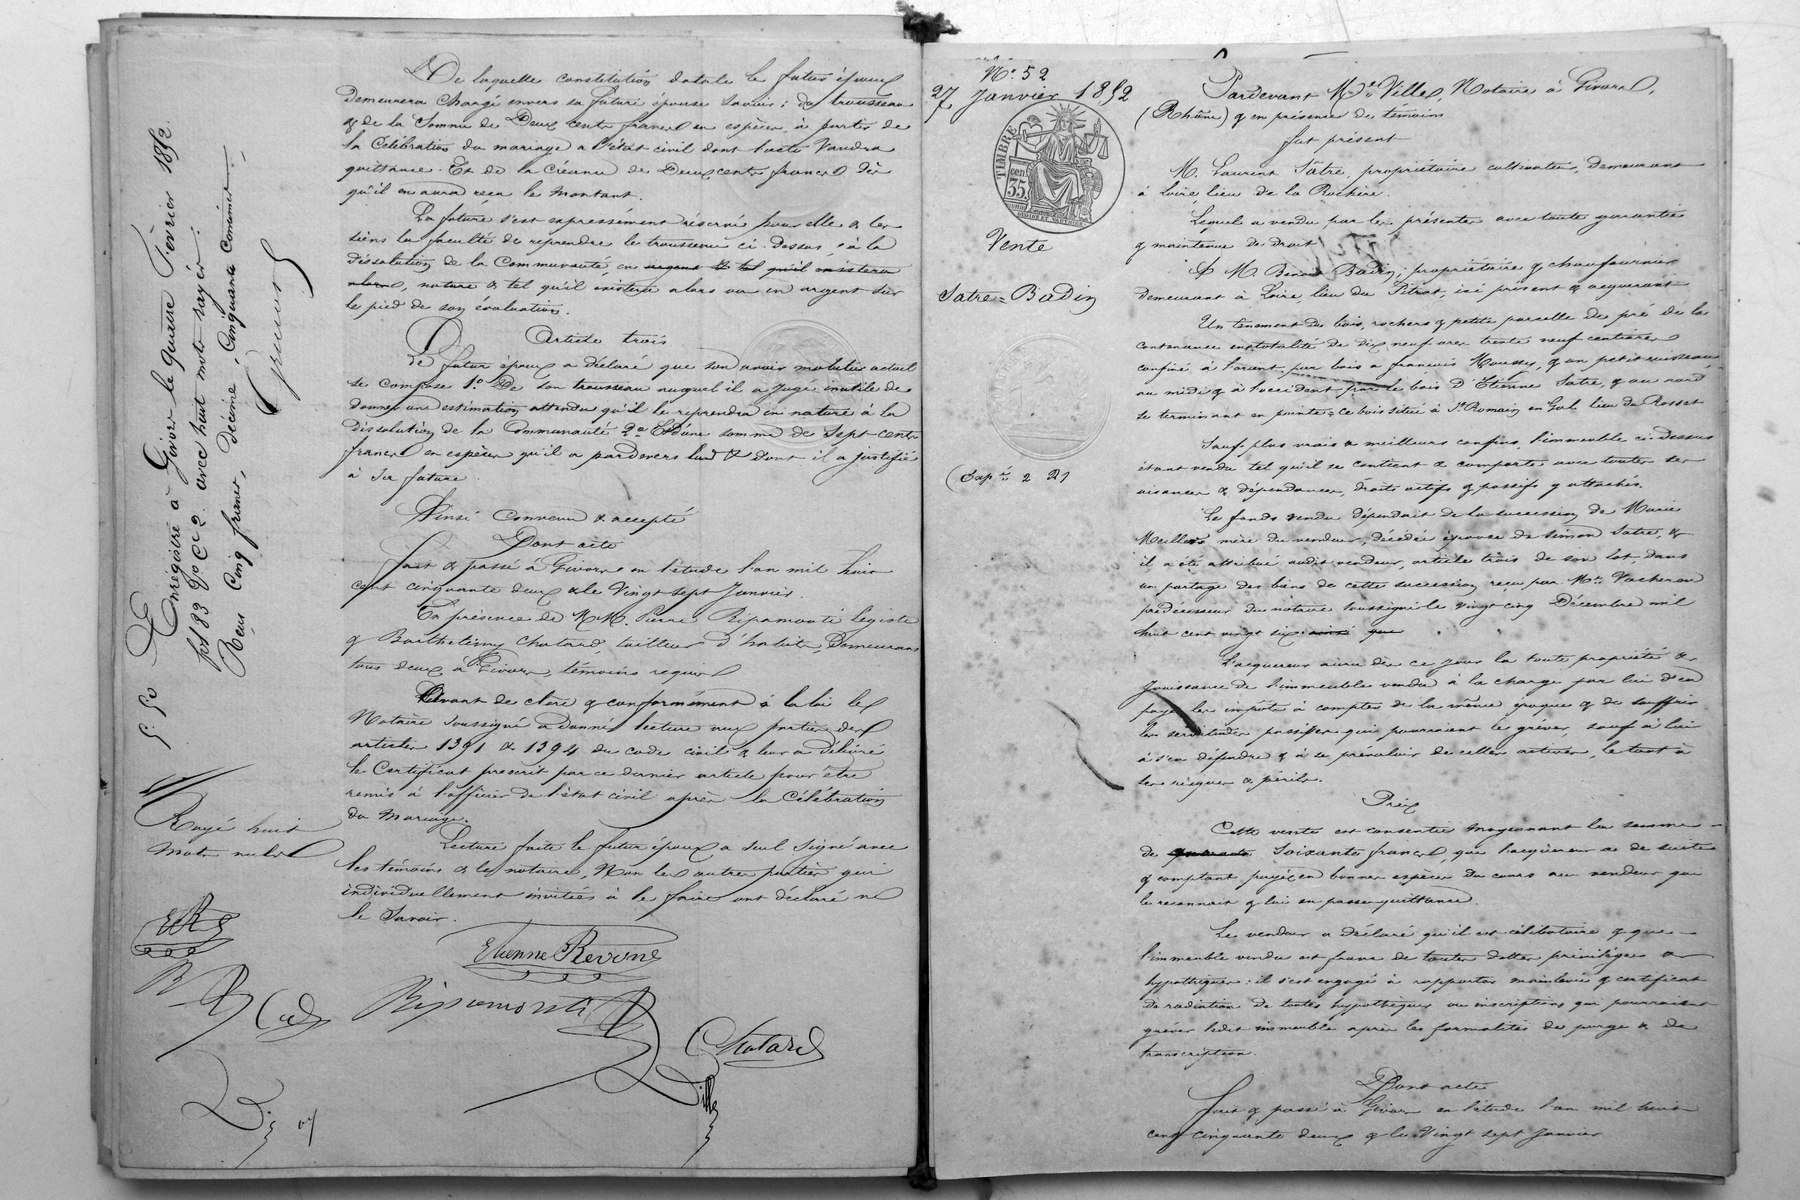 De laquelle constitution dotale le futur époux
demeurera chargé envers sa future épouse savoir: du trousseau
& de la Somme de Deux cents francs en espèces, à partir de
la Célébration du mariage à l'état civil dont l'acte Vaudra
quittance. Et de la Créance de Deux cents francs dès
qu'il en aura reçu le montant.
La future s'est expressément réservé pour elle & les
siens la faculté de reprendre le trousseau ci-dessus, à la
dissolution de la Communauté, en argent & tel qu'il existera
alors, nature & tel qu'il existera alors ou en argent sur
le pied de son évaluation.
Article trois
Le futur époux a déclaré que son avoir mobilier actuel
se compose 1.o De son trousseau auquel il a jugé inutile de
donner une estimation attendu qu'il le reprendra en nature à la
dissolution de la Communauté 2.o Et d'une somme de Sept cents
francs en espèces qu'il a pardevers lui & dont il a justifié
à sa future.
Ainsi Convenu & accepté
Dont acte
Fait & passé à Givors en l'étude l'an mil huit
cent cinquante deux & le Vingt sept Janvier.
En présence de MM. Pierre Ripamonti légiste
& Barthélemy Chatard, tailleur d'habits, Demeurans
tous deux à Givors, témoins requis
Avant de clore & conformément à la loi le
Notaire soussigné a donné lecture aux parties des
articles 1391 & 1394 du code civil & leur a délivré
le Certificat prescrit par ce dernier article pour être
remis à l'officier de l'état civil après la Célébration
du Mariage.
Lecture faite le futur époux a seul signé avec
les témoins & le notaire, Non les autres parties qui
individuellement invitées à le faire ont déclaré ne
le Savoir.
Etienne Revone
Ripamonti
Chatard
Ville
Enregistré à Givors le quatre Février 1852.
fol 83 Vo C 2. avec huit mots rayés:
Reçu Cinq francs, Décime, Cinquante Centimes
5 50
Rayé huit
Mots nuls
ER
R
Cd
N.o 52
27 Janvier 1852
TIMBRE
35 cen
Vente
Satre = Badin
2 21
Pardevant M.e Ville, Notaire à Givors,
(Rhône) & en présence de témoins
fut présent
M. Laurent Satre, propriétaire cultivateur, demeurant
à Loire, lieu de la Rochère.
Lequel a vendu par les présentes avec toute garantie
& maintenue de droit
A M. Benoit Badin, propriétaire & chaufournier
demeurant à Loire, lieu du Pitrat, ici présent & acquérant
Un tenement de bois, rochers & petite parcelle de pré de la
contenance en totalité de dix neuf ares trente neuf centiares
confiné à l'orient par bois à françois Mousset, & un petit ruisseau,
au midi & à l'occident par le bois d'Etienne Satre, & au nord
se terminant en pointe = ce bois situé à St. Romain en Gal lieu du Rosset
Sauf plus vrais & meilleurs confins, l'immeuble ci-dessus
étant vendu tel qu'il se contient & comporte avec toutes ses
aisances & dépendances, droits actifs & passifs y attachés.
Le fonds vendu dépendait de la succession de Marie
mère du vendeur, décédée épouse de Simon Satre, &
il a été attribué audit vendeur, article trois de son lot, dans
un partage des biens de cette succession, reçu par M.e Vacheron
prédécesseur du notaire soussigné le vingt cinq Décembre mil
huit cent vingt six ainsi que
L'acquéreur aura dès ce jour la toute propriété &
Jouissance de l'immeuble vendu à la charge par lui d'en
payer les impôts à compter de la même époque & de souffrir
les servitudes passives qui pourraient le grever, sauf à lui
à s'en défendre & à se prévaloir de celles actives, le tout à
ses risques & périls.
Prix
Cette vente est consentie moyennant la somme
de quarante soixante francs, que l'acquéreur a de suite
& comptant payée en bonnes espèces du cours au vendeur qui
le reconnait & lui en passe quittance.
Le vendeur a déclaré qu'il est célibataire & que
l'immeuble vendu est franc de toutes dettes privilèges ou
hypothèques: il s'est engagé à rapporter mainlevée & certificat
de radiation de toutes hypothèques ou inscriptions qui pourraient
grever ledit immeuble après les formalités de purge & de
transcription.
Dont acte
Fait & passé à Givors en l'étude l'an mil huit
cent cinquante deux & le Vingt sept Janvier